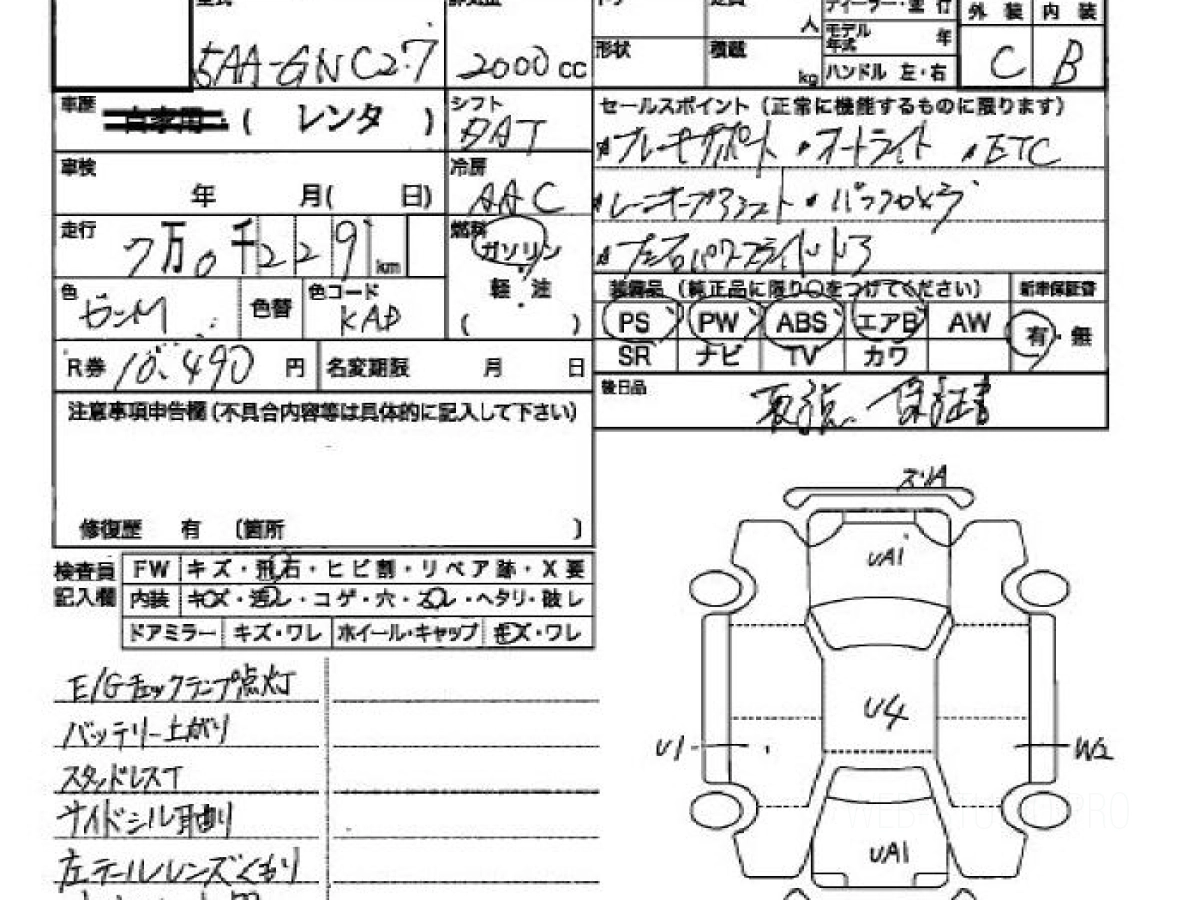 5AA-GNC27
2000 cc
人
形状
積載
kg
モデル年式
年
ハンドル 左・右
外装 内装
C B
車歴
自家用・( レンタ )
シフト
DAT
セールスポイント (正常に機能するものに限ります)
・ブレーキサポート ・オートライト ・ETC
車検
年 月( 日)
冷房
AAC
・レーンキープアシスト ・バックカメラ
走行
7万0千229 km
燃料
ガソリン
軽・油
( )
・左右パワースライドドア
色
色替
色コード
KAD
装備品 (純正品に限り○をつけてください) 新車保証書
PS PW ABS エアB AW 有・無
SR ナビ TV カワ
R券 10,490 円
名変期限 月 日
後日品
取説、保証書
注意事項申告欄(不具合内容等は具体的に記入して下さい)
修復歴 有 〔箇所 〕
検査員記入欄
FW キズ・飛石・ヒビ割・リペア跡・X要
内装 キズ・汚レ・コゲ・穴・スレ・ヘタリ・破レ
ドアミラー キズ・ワレ ホイール・キャップ キズ・ワレ
E/Gチェックランプ点灯
バッテリー上がり
スタッドレスT
サイドシル耳曲り
左テールレンズくもり
スリA
UA1
U4
U1
W2
UA1